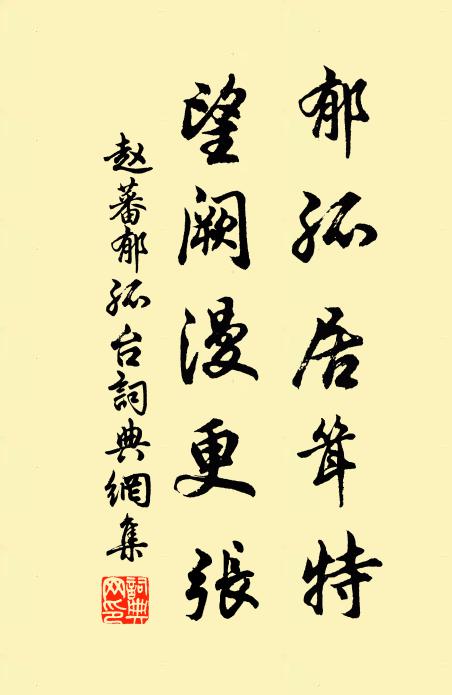 郁孤居耸特
望阙漫更張
赵蕃郁孤台詞典網集
詞典网印